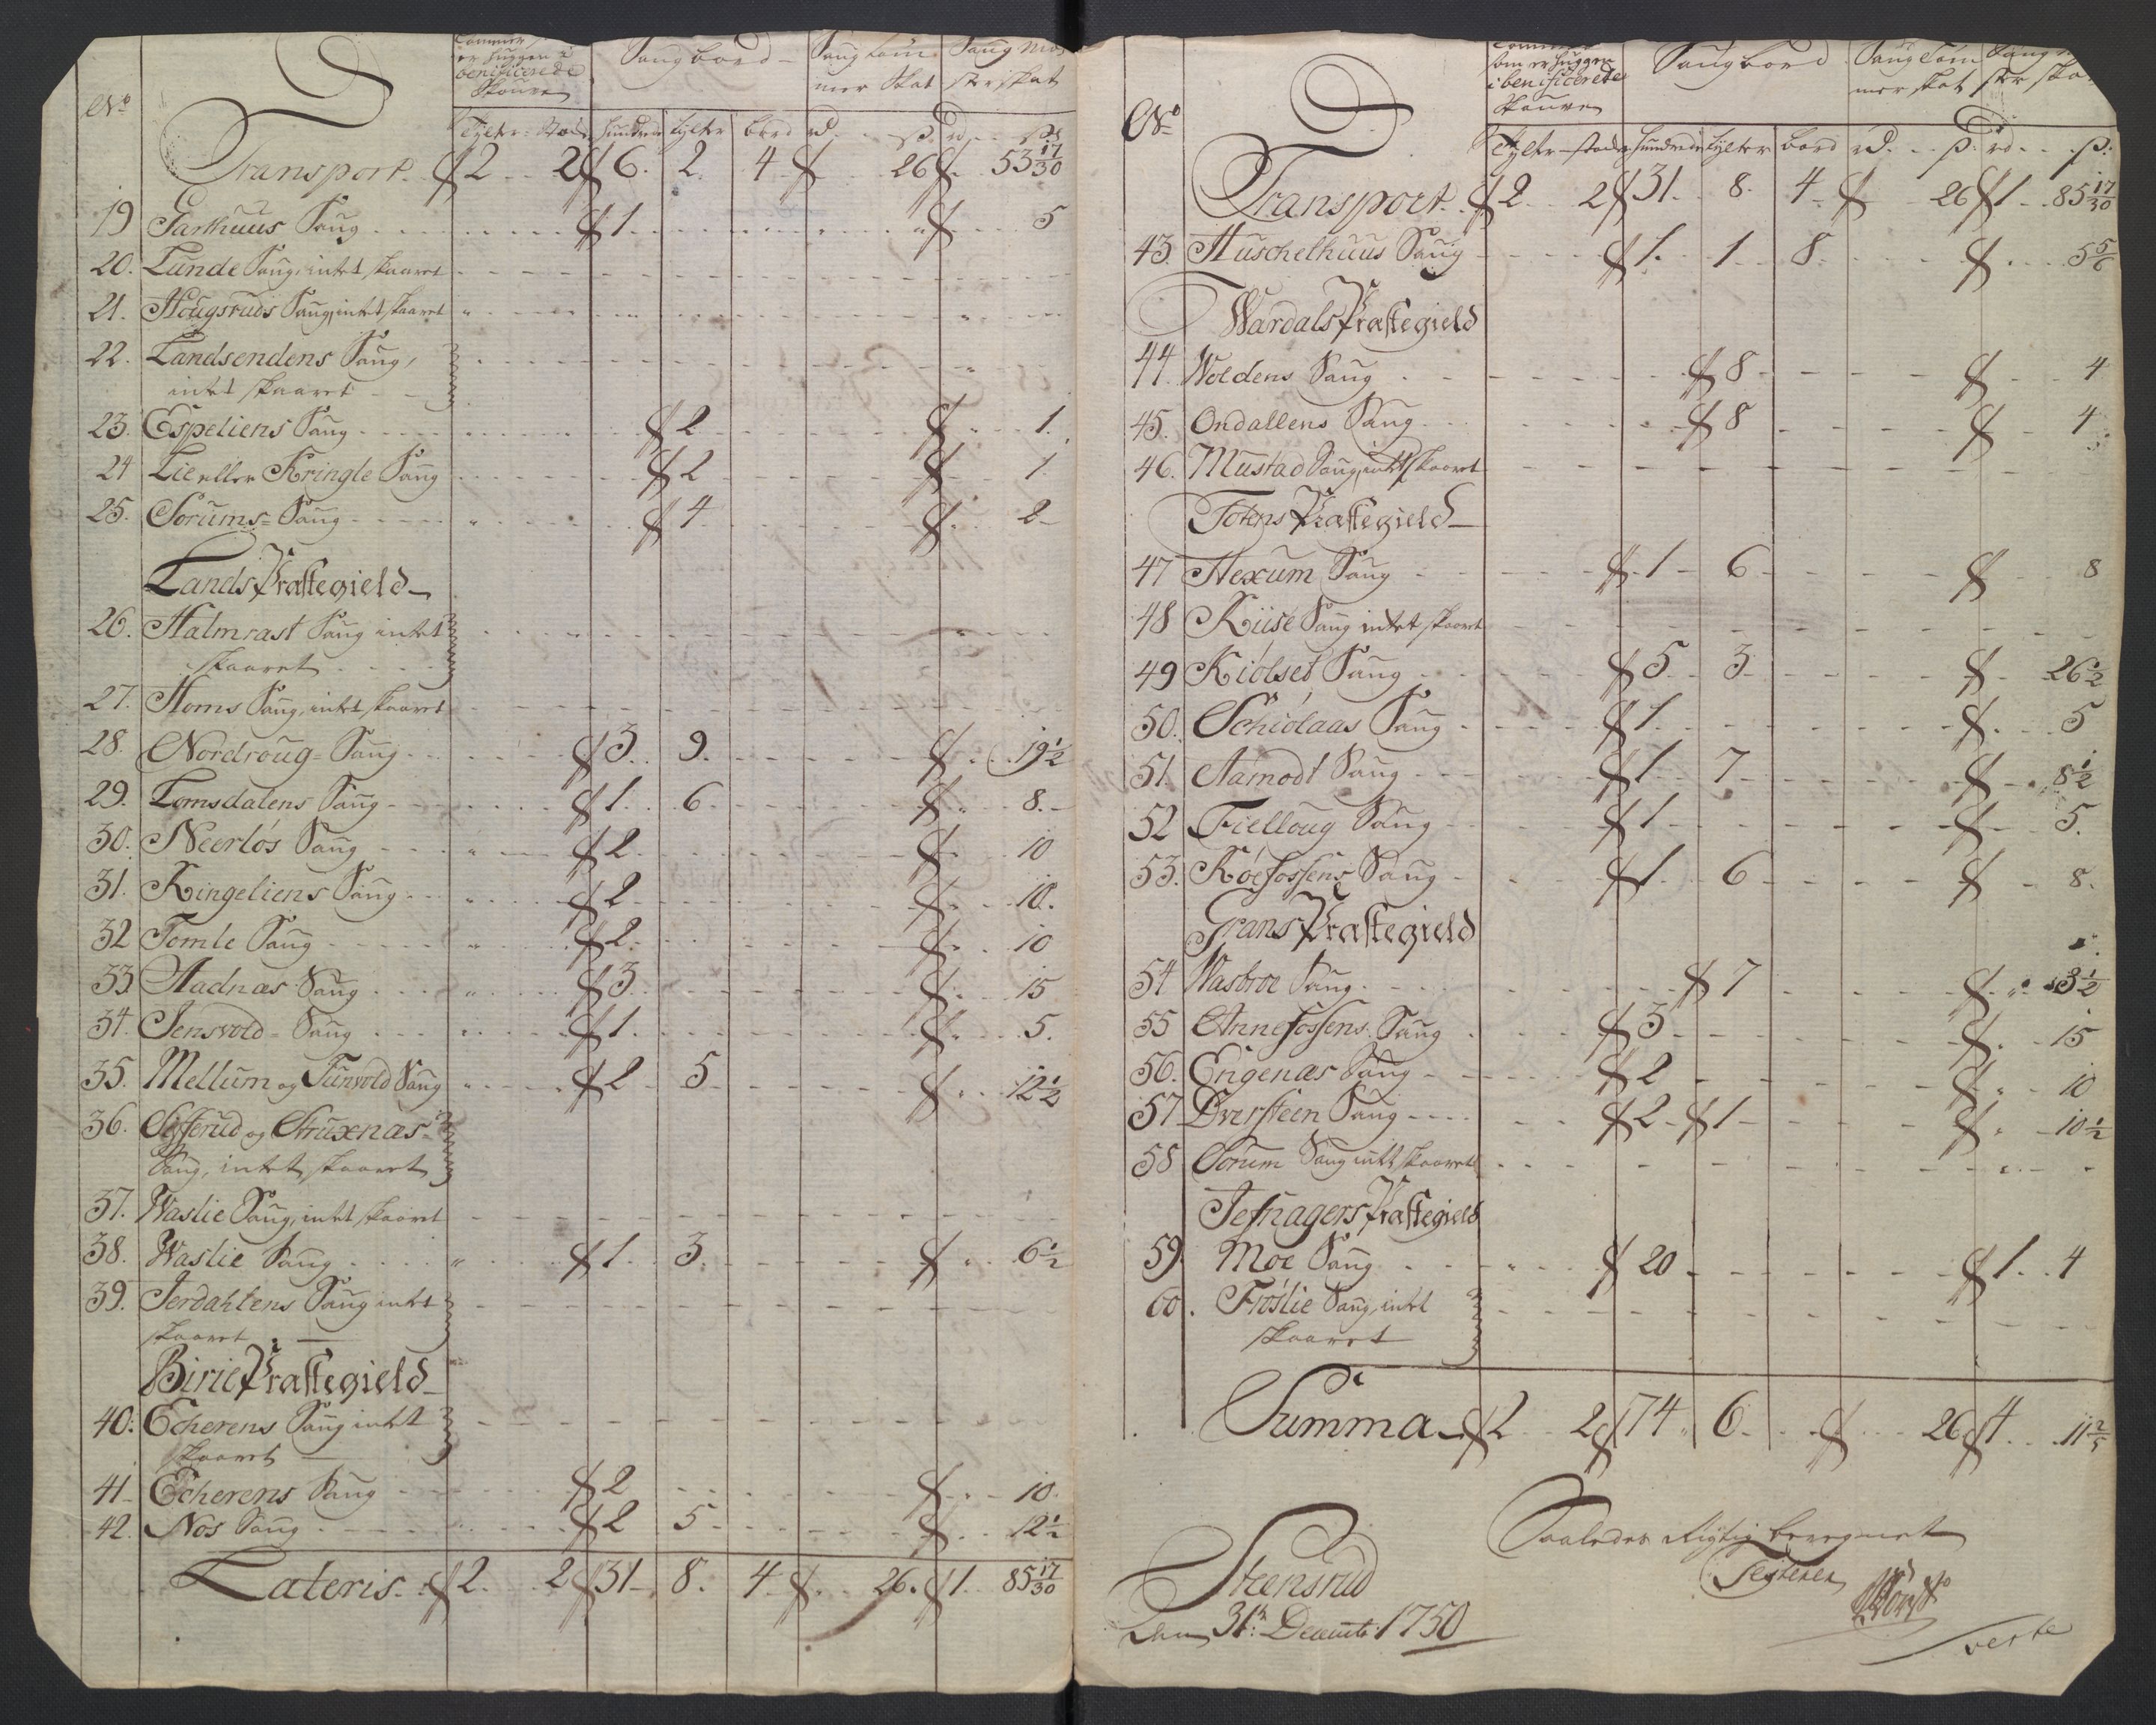 No
Tømmer
er huggen i
benificerede
Skouve
Saugbord
Saug Tøm
mer Skat
Saug Me
ster skat
Tylter Stok hundrede tylter bord rd. ß. rd. ß
Transport 2 2 6. 2. 4 26 53 17/30
19 Garthuus Saug 1 5
20. Lunde Saug, intet skaaret
21. Hougsruds Saug, intet skaaret
22. Landsendens Saug,
intet skaaret
23. Espeliens Saug 2 1.
24 Lie eller Kringle Saug 2 1.
25. Sørums Saug 4 2
Lands Præstegield
26. Halmrast Saug intet
skaaret
27. Homs Saug, intet skaaret
28. Nordroug Saug 3. 9. 19 1/2
29. Lomsdalens Saug 1. 6 8.
30. Neerløs Saug 2. 10
31. Ringeliens Saug 2 10.
32 Tomle Saug 2. 10
33 Aadnæs Saug 3 15
34. Jensvold Saug 1. 5.
35. Mellum og Funvold Saug 2 5 12 1/2
36. Sefferud og Struxnæs
Saug, intet skaaret
37. Waslie Saug, intet skaaret
38. Waslie Saug 1. 3. 6 1/2
39. Jerdahlens Saug intet
skaaret
Birie Præstegield
40. Echerens Saug intet
skaaret
41 Echerens Saug 2 10
42. Nøs Saug 2 5 12 1/2
Lateris 2. 2 31 8. 4 26. 1. 85 17/30
No
Tømmer
som er huggen
i benificerede
Skouve
Saugbord
Saug Tøm
mer skat
Saug
ster ska
Tylter stok hundrede tylter bord rd. ß. rd. ß:
Transport 2. 2 31. 8. 4 26 1 85 17/30
43. Huschelhuus Saug 1. 1 8. 5 5/6
Wardals Præstegield
44. Woldens Saug 8 4
45. Ondallens Saug 8 4
46. Mustad Saug, intet skaaret
Totens Præstegield
47 Hexum Saug 1 6 8
48 Kiise Saug intet skaaret
49 Kiølset Saug 5 3 26 1/2
50. Schiølaas Saug 1. 5
51. Aamodt Saug 1 7 8 1/2
52 Fielloug Saug 1 5.
53. Røefossens Saug 1. 6 8.
Grans Præstegield
54 Wasbroe Saug 7 3 1/2
55 Annefossens Saug 3 15
56. Engenæs Saug 2 10
57 Dversteen Saug 2 1 10 1/2
58 Sørum Saug intet skaaret
Jefnagers Præstegield
59. Moe Saug 20 1. 4
60. Frøslie Saug, intet
skaaret
Summa 2 2 74 6. 26 4 11 2/5
Saaledes Rigtig beregnet
Testerer
Steensrud
den 31te Decembr: 1750
verte